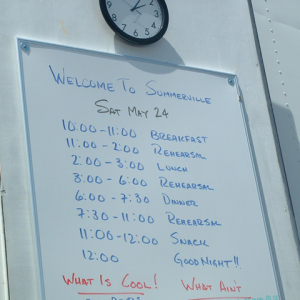 WELCOME TO SUMMERVILLE
SAT MAY 24
10:00-11:00 BREAKFAST
11:00-2:00 REHEARSAL
2:00-3:00 LUNCH
3:00-6:00 REHEARSAL
6:00-7:30 DINNER
7:30-11:00 REHEARSAL
11:00-12:00 SNACK
12:00 GOODNIGHT!!
WHAT IS COOL! WHAT AINT